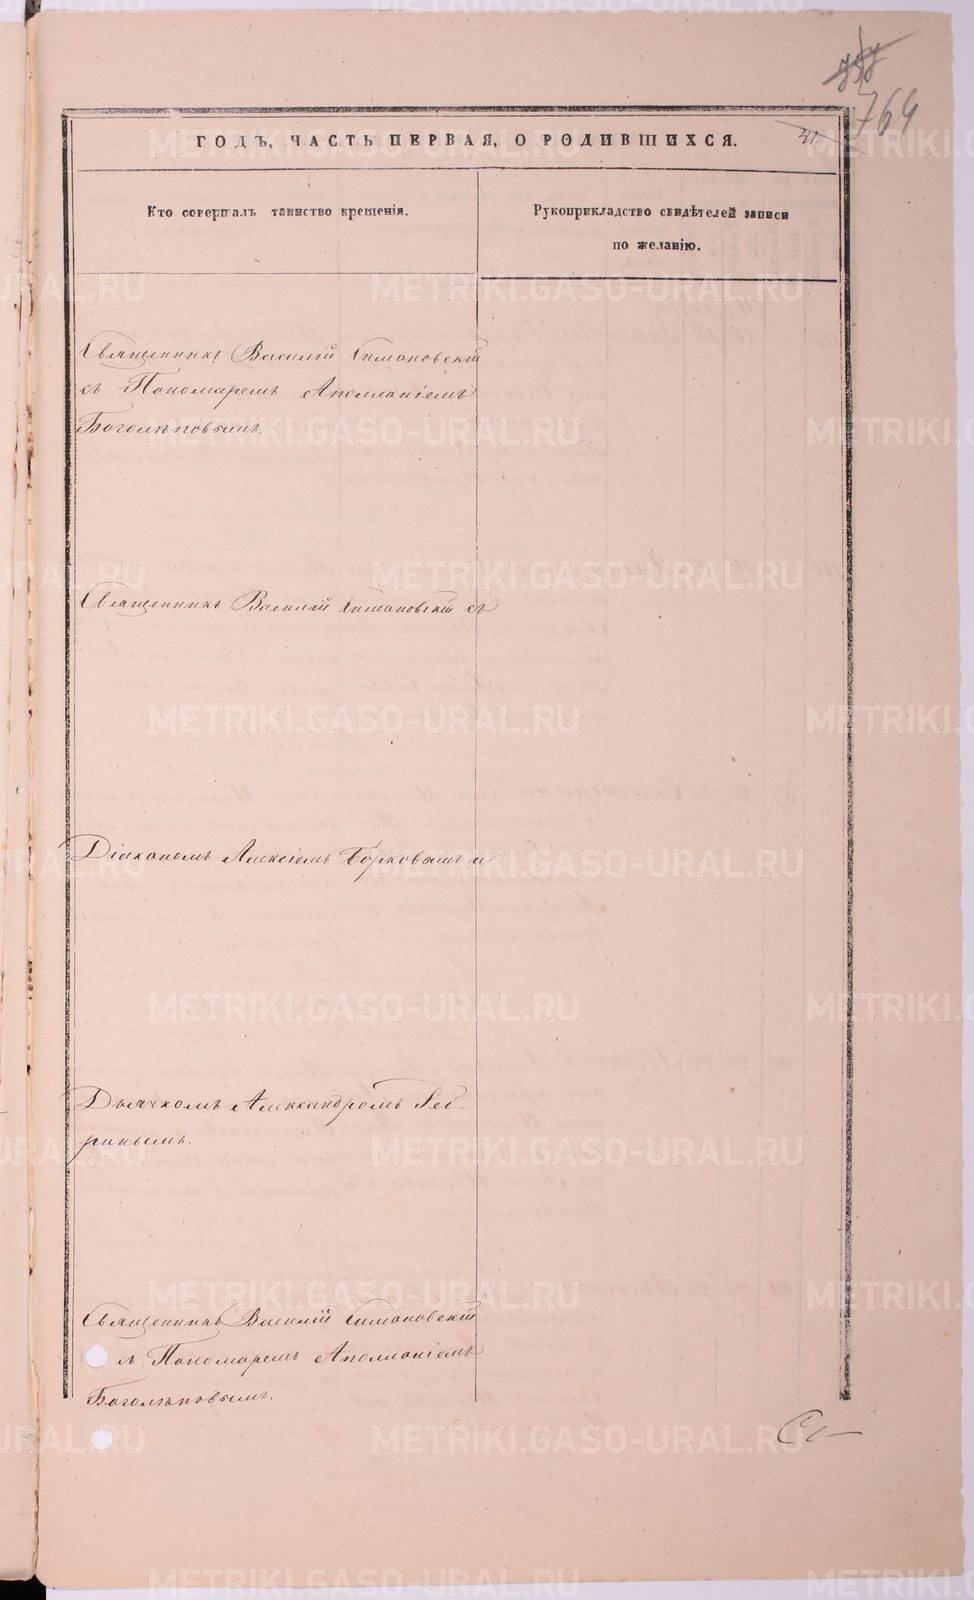 764
ГОДЪ, ЧАСТЬ ПЕРВАЯ, О РОДИВШИХСЯ.
41.
Кто совершалъ таинство крещенія.
Рукоприкладство свидѣтелей записи
по желанію.
Священникъ Василій Симановскій
съ Пономаремъ Аполлоніемъ
Боголѣповымъ.
Священникъ Василій Симановскій съ
Діакономъ Алексіемъ Борковымъ и
Дьячкомъ Александромъ
Священникъ Василій Симановскій
съ Пономаремъ Аполлоніемъ
Боголѣповымъ.
METRIKI.GASO-URAL.RU